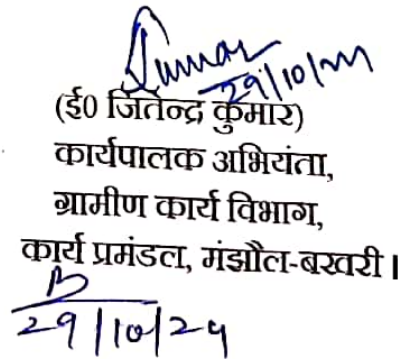 Kumar
29/10/24
(ई0 जितेन्द्र कुमार)
कार्यपालक अभियंता,
ग्रामीण कार्य विभाग,
कार्य प्रमंडल, मंझौल-बखरी।
29/10/24